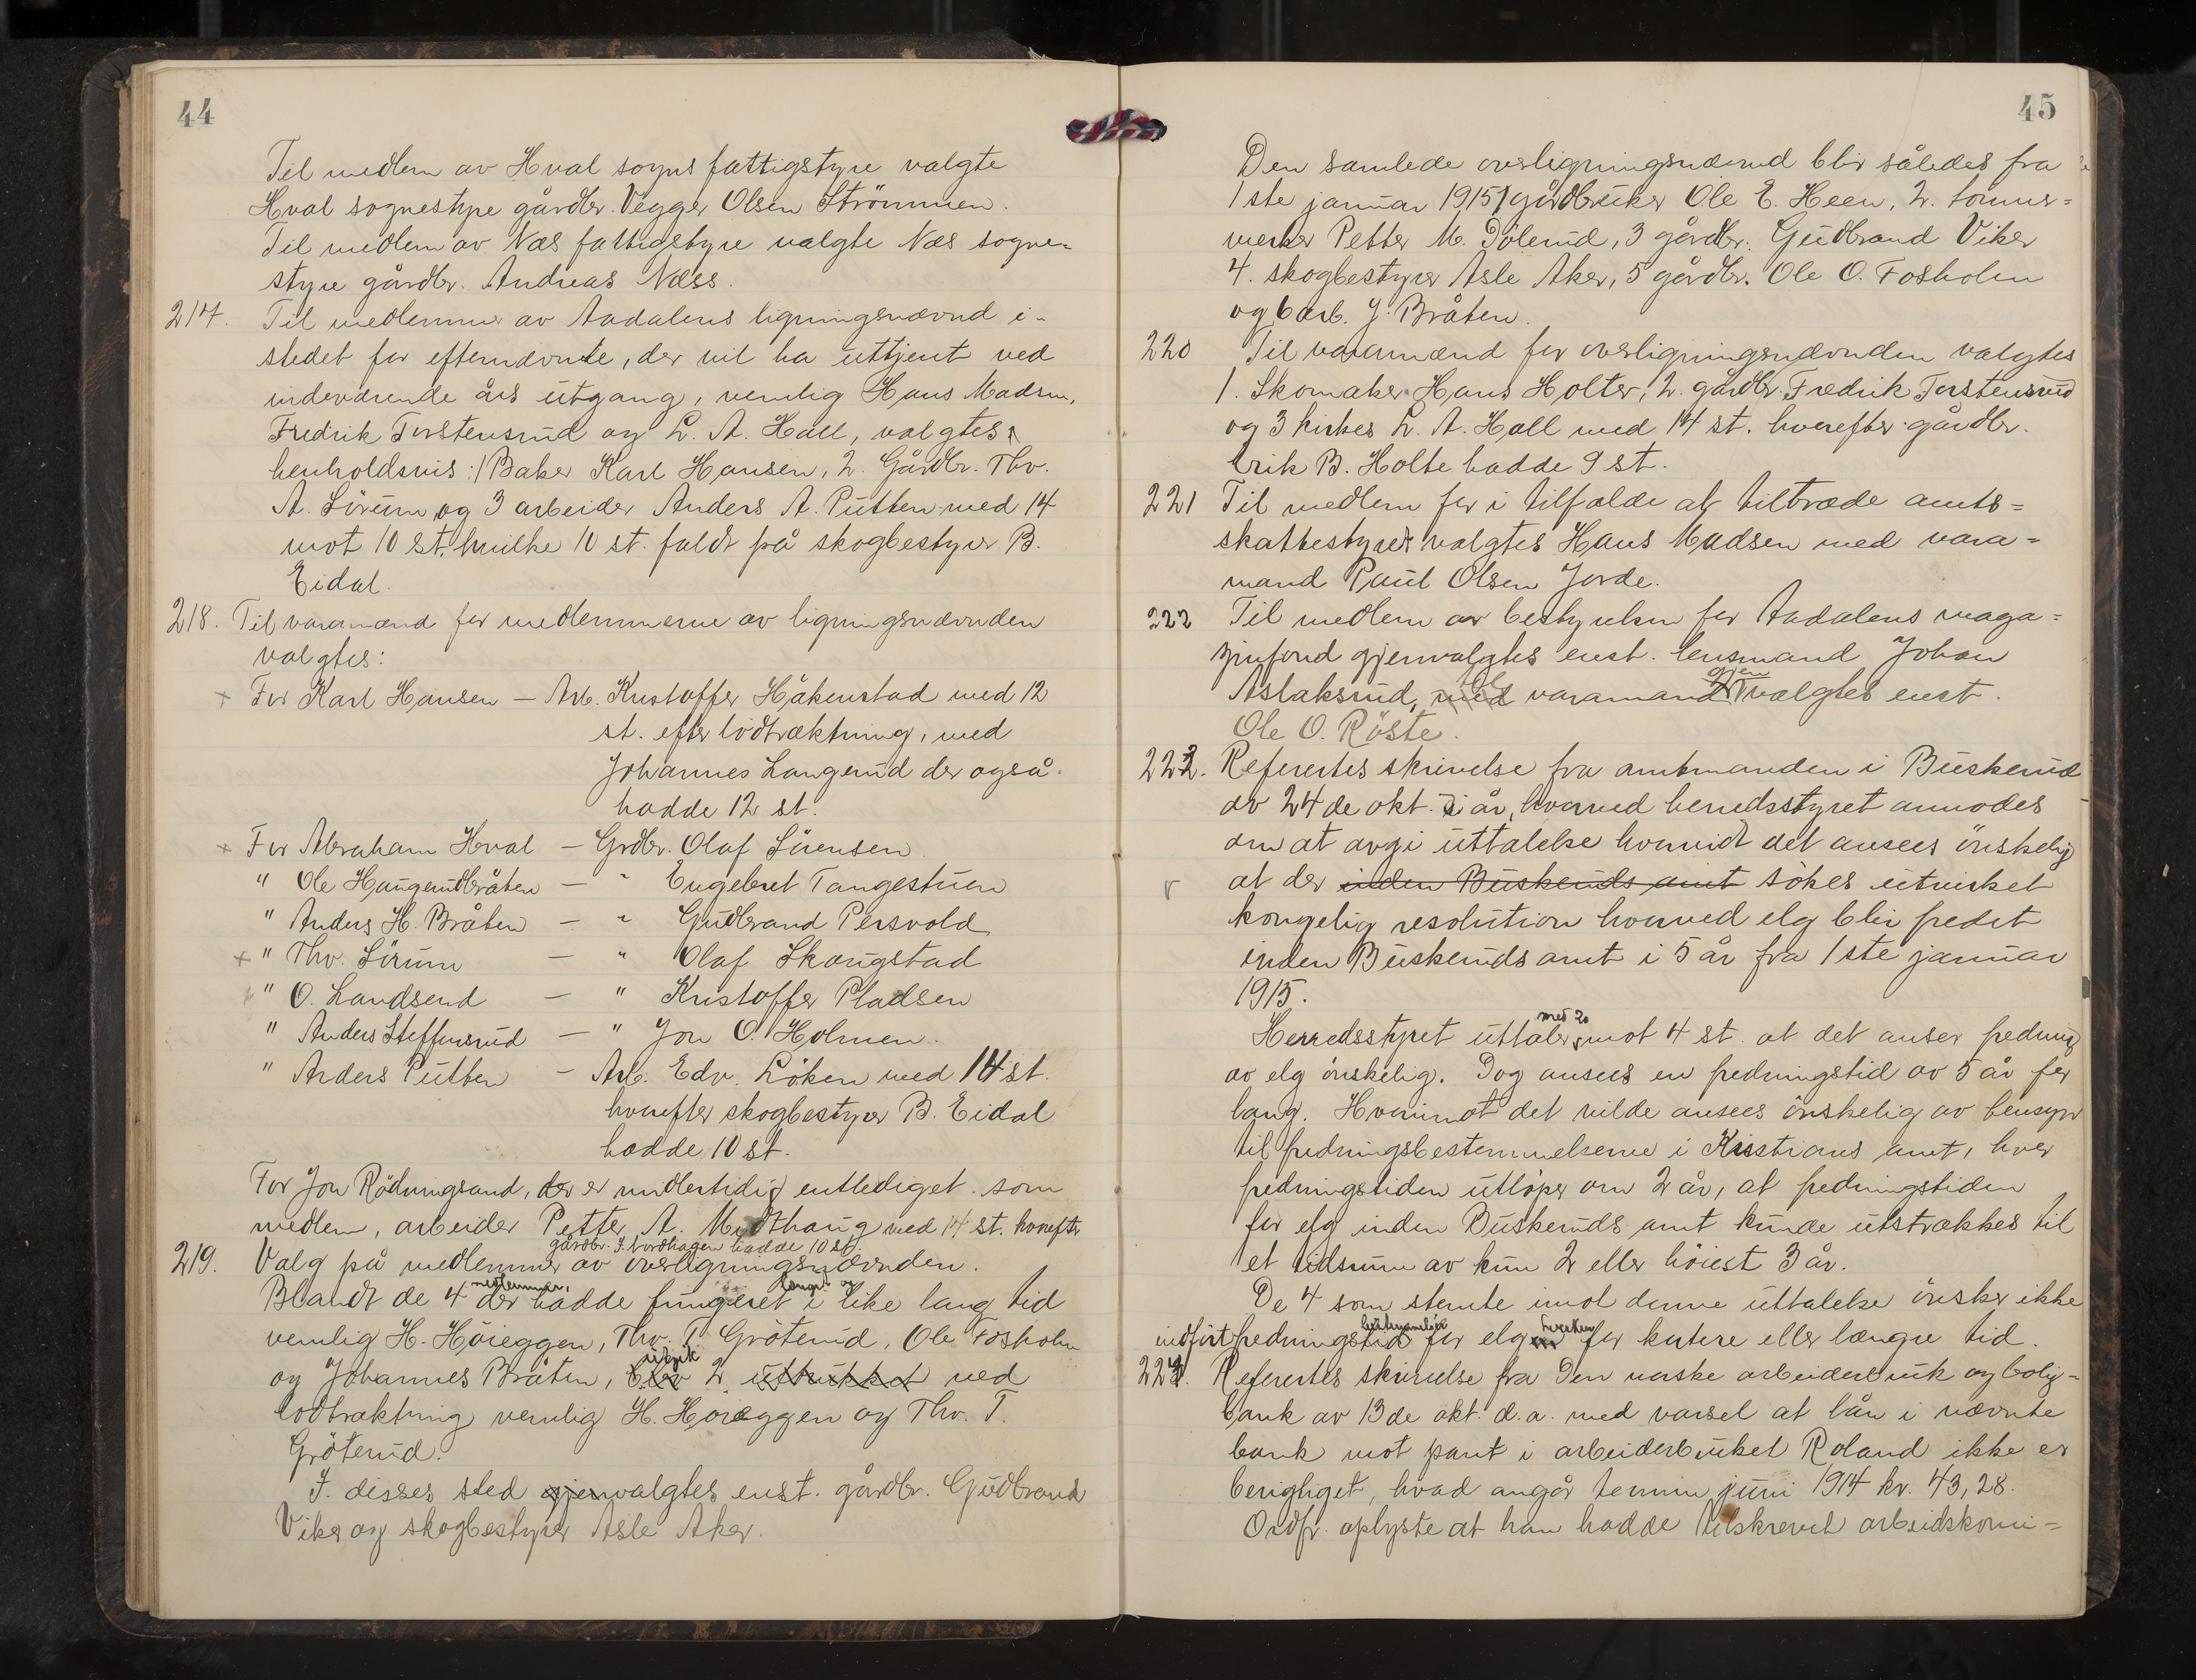 44
Til medlem av Hval sogns fattigstyre valgte
Hval sognestyre gårdbr. Vegger Olsen Strömmen.
Til medlem av Næs fattigstyre valgte Næs sogne-
styre gårdbr. Andreas Næss.
217. Til medlemmer av Aadalens ligningsnævnd i-
stedet for efternævnte, der vil ha uttjent ved
indeværende års utgang, nemlig Hans Madsen,
Fredrik Torstensrud og L. A. Hall, valgtes
henholdsvis: 1 Baker Karl Hansen, 2. Gårdbr. Thv.
A. Sörum og 3 arbeider Anders A. Putten med 14
mot 10 st. hvilke 10 st. faldt på skogbestyrer B.
Eidal.
218. Til varamænd for medlemmerne av ligningsnævnden
valgtes:
+ For Karl Hansen — Arb. Kristoffer Håkenstad med 12
st. efter lodtræktning, med
Johannes Langerud der også
hadde 12 st.
+ For Abraham Hval — Grdbr. Olaf Sörensen
" Ole Haugerudbråten — " Engebret Tangestuen
" Anders H. Bråten — " Gudbrand Persvold
+ " Thv. Sörum — " Olaf Skougstad
" O. Landsend — " Kristoffer Pladsen
" Anders Steffensrud — " Jon O. Holmen.
" Anders Putten — Arb. Edv. Löken med 14 st.
hvorefter skogbestyrer B. Eidal
hadde 10 st.
For Jon Rödningsand, der er midlertidig entlediget som
medlem, arbeider Petter A. Midthaug med 14 st. hvorefter
gårdbr. J. Nordhagen hadde 10 st.
219. Valg på medlemmer av overligningsnævnden.
medlemmer, længst og
Blandt de 4 der hadde fungeret i like lang tid
nemlig H. Höieggen, Thv. T. Gröterud, Ole Fosholm
utgik
og Johannes Bråten, blev 2 uttrukket ved
lodtræktning nemlig H. Höieggen og Thv. T.
Gröterud.
I disses sted gjenvalgtes enst. gårdbr. Gudbrand
Viker og skogbestyrer Asle Aker.
45
Den samlede overligningsnævnd blir således fra
1ste januar 1915: 1 gårdbruker Ole E. Heen, 2. tömmer=
merker Petter M. Sölerud, 3 gårdbr. Gudbrand Viker
4. skogbestyrer Asle Aker, 5 gårdbr. Ole O. Fosholm
og 6 arb. J. Bråten.
220 Til varamænd for overligningsnævnden valgtes
1. Skomaker Hans Holter, 2. gårdbr. Fredrik Torstensrud
og 3 kirkes. L. A. Hall med 14 st. hvorefter gårdbr.
Erik B. Holte hadde 9 st.
221 Til medlem for i tilfælde at tiltræde amts=
skattestyret valgtes Hans Madsen med vara=
mand Paul Olsen Jorde.
222 Til medlem av bestyrelsen for Aadalens maga=
zinfond gjenvalgtes enst. lensmand Johan
til gjen
Aslaksrud, med varamand valgtes enst.
Ole O. Röste.
223. Referertes skrivelse fra amtmanden i Buskerud
av 24de okt. i år, hvorved herredsstyret anmodes
om at avgi uttalelse hvorvidt det ansees önskelig
v at der inden Buskeruds amt sökes utvirket
kongelig resolution hvorved elg blir fredet
inden Buskeruds amt i 5 år fra 1ste januar
1915.
med 20
Herredsstyret uttaler mot 4 st. at det anser fredning
av elg önskelig. Dog ansees en fredningstid av 5 år for
lang. Hvorimot det vilde ansees önskelig av hensyn
til fredningsbestemmelserne i Kristians amt, hvor
fredningstiden utlöper om 2 år, at fredningstiden
for elg inden Buskeruds amt kunde utstrækkes til
et tidsrum av kun 2 eller höiest 3 år.
De 4 som stemte imot denne uttalelse önsker ikke
bestemmelser hverken
indfört fredningstid for elg for kortere eller længre tid.
224. Referertes skrivelse fra Den norske arbeiderbruk og bolig=
bank av 13de okt. d.a. med varsel at lån i nævnte
bank mot pant i arbeiderbruket Roland ikke er
berigtiget, hvad angår termin juni 1914 kr. 43,28.
Ordf. oplyste at han hadde tilskrevet arbeidskomi=